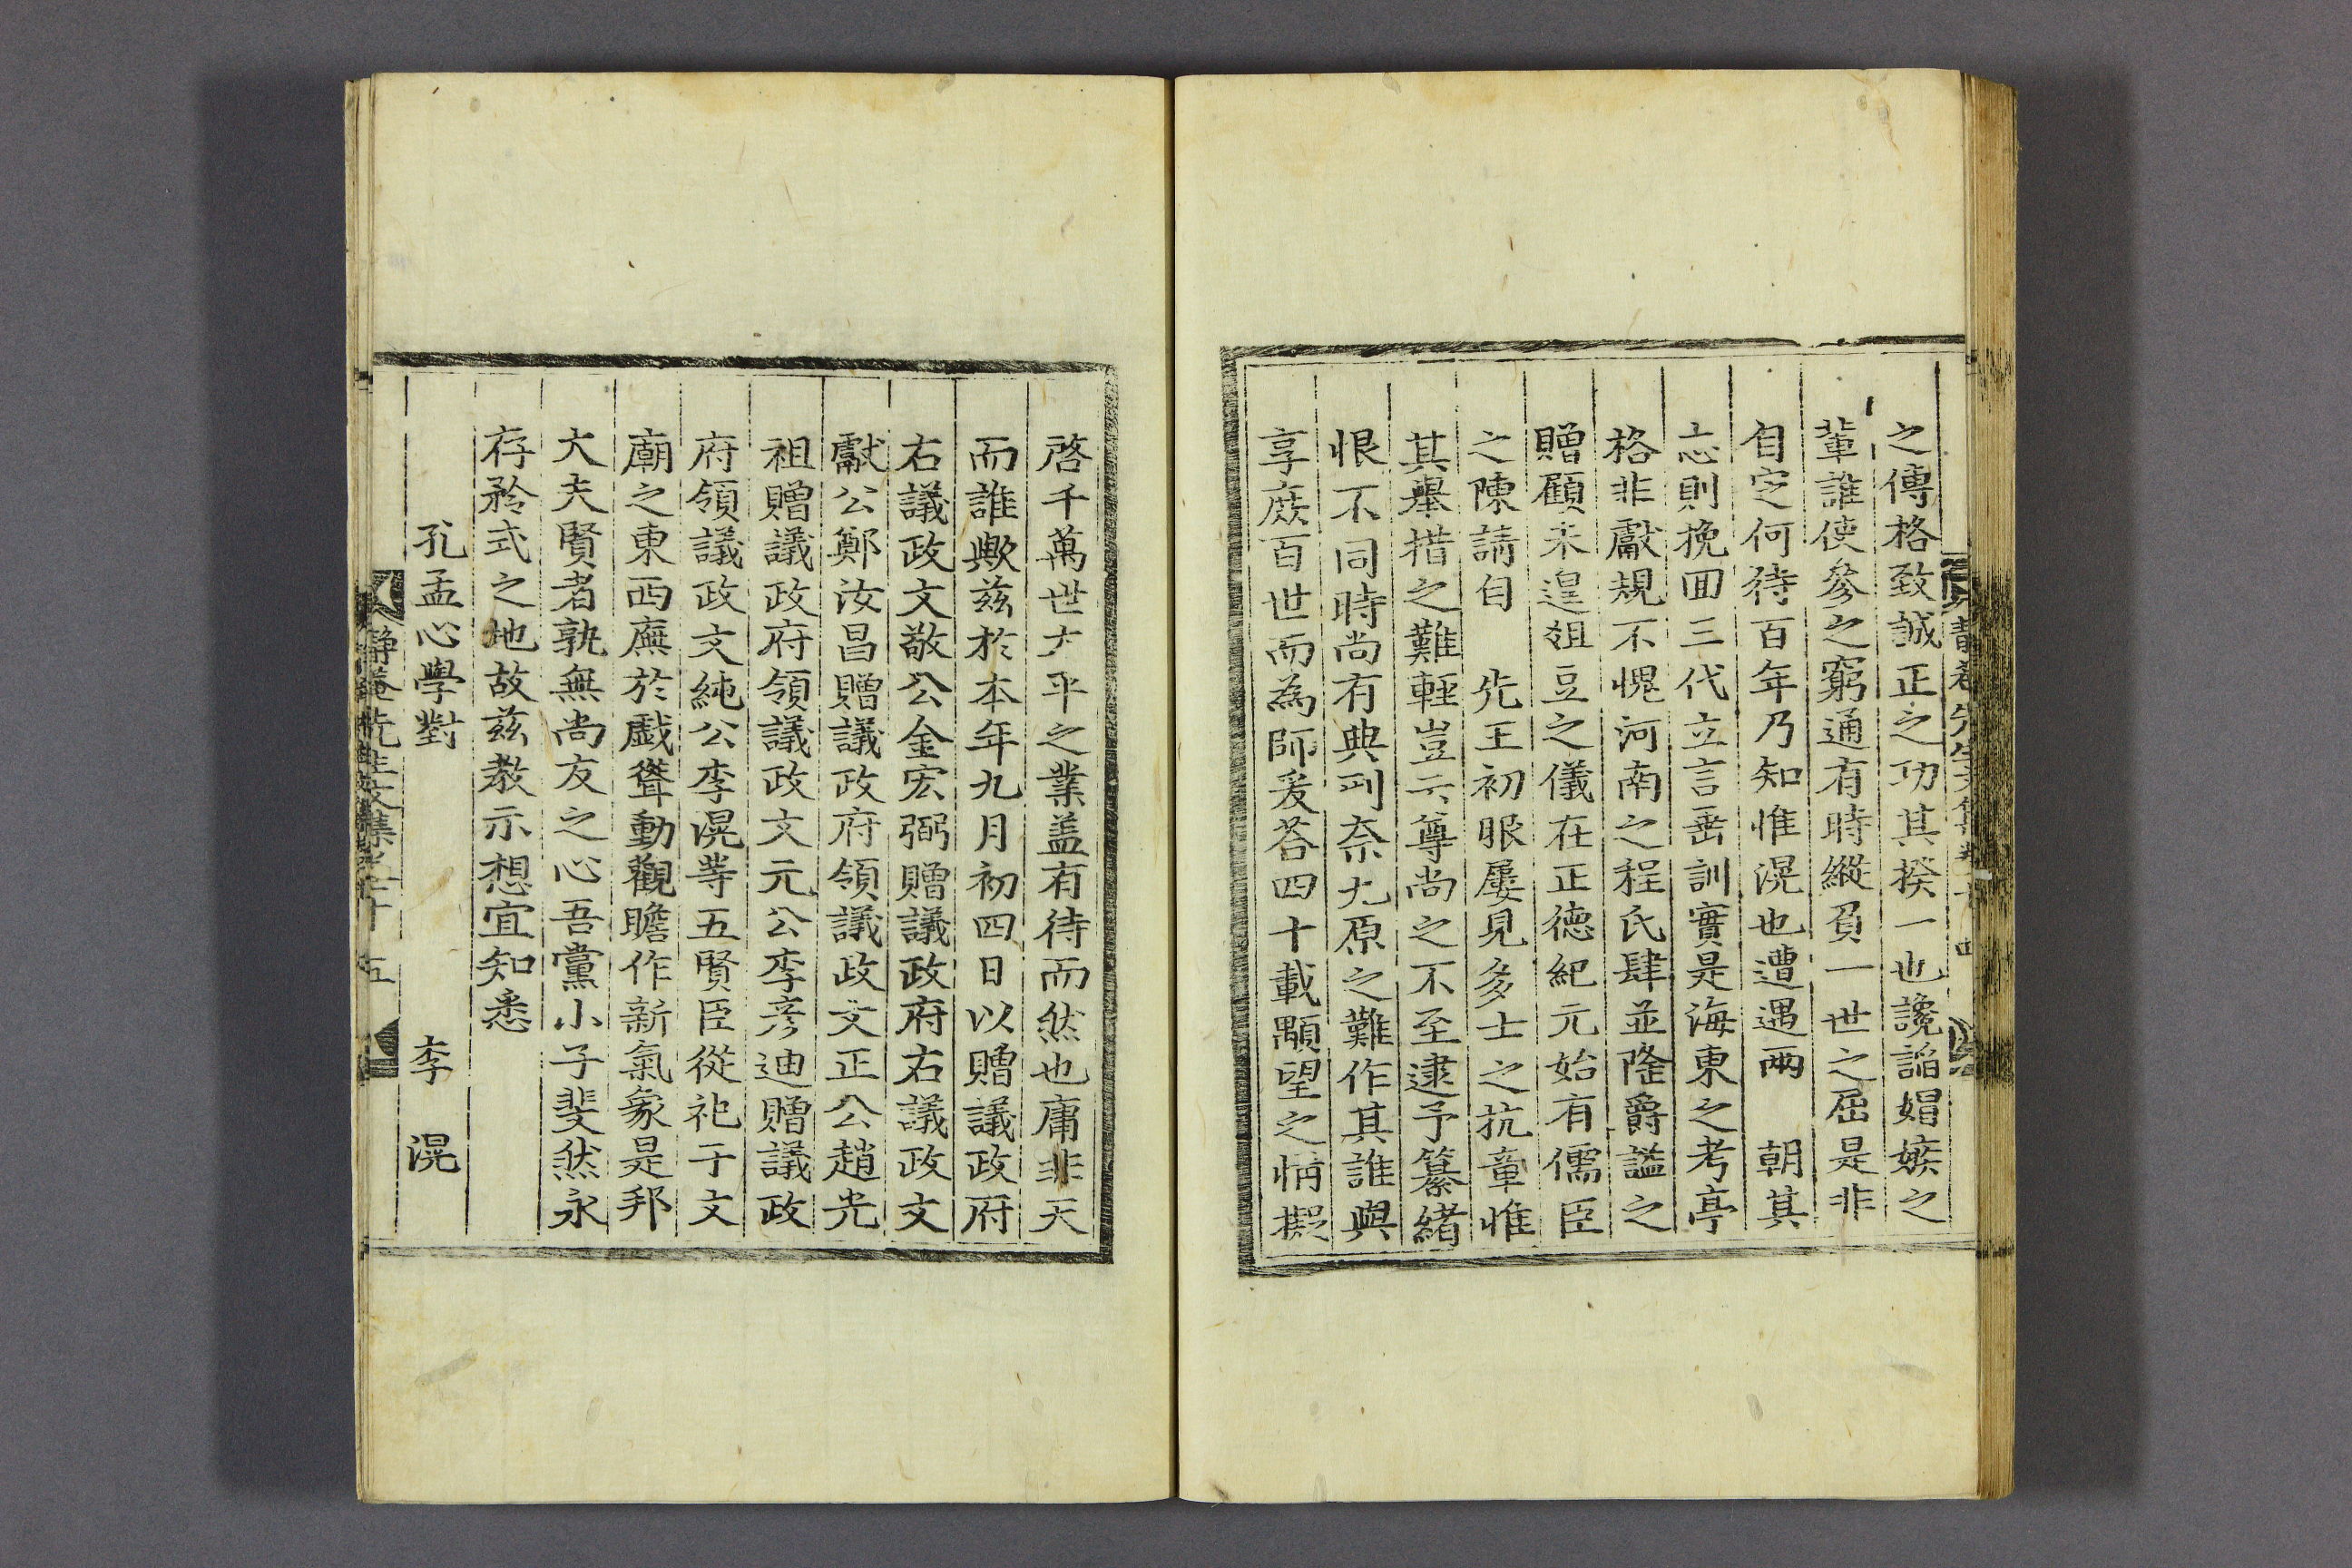 之傳格致誠正之功其揆一也讒謟娼嫉之
輩誰使參之窮通有時縱負一世之屈是非
自定何待百年乃知惟滉也遭遇兩　朝其
志則挽回三代立言垂訓實是海東之考亭
格非獻規不愧河南之程氏肆並隆爵謚之
贈顧未遑俎豆之儀在正德紀元始有儒臣
之陳請自　先王初服屢見多士之抗章惟
其舉措之難輕豈云尊尚之不至逮予纂緖
恨不同時尚有典刑奈九原之難作其誰與
享庶百世而為師爰荅四十載顒望之情擬
啓千萬世太平之業盖有待而然也庸非天
而誰歟玆於本年九月初四日以贈議政府
右議政文敬公金宏弼贈議政府右議政文
獻公鄭汝昌贈議政府領議政文正公趙光
祖贈議政府領議政文元公李彦迪贈議政
府領議政文純公李滉等五賢臣從祀于文
廟之東西廡於戱聳動觀瞻作新氣象是邦
大夫賢者孰無尚友之心吾黨小子斐然永
存矜式之地故玆敎示想宜知悉
孔孟心學對　李滉
靜菴先生文集 五